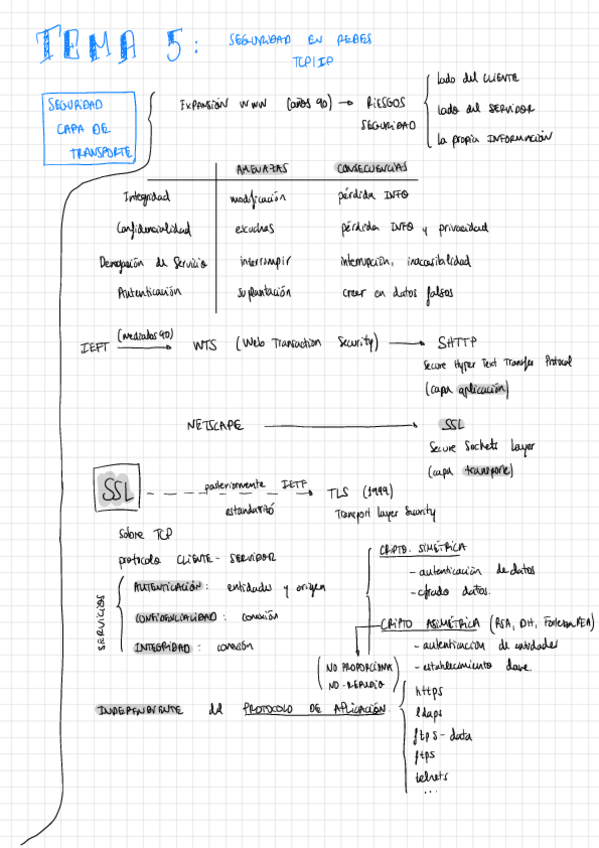 TEMA 5: SEGURIDAD EN REDES
TCP/IP
SEGURIDAD
CAPA DE
TRANSPORTE
EXPANSIÓN WWW (años 90) → RIESGOS
SEGURIDAD
lado del CLIENTE
lado del SERVIDOR
la propia INFORMACIÓN
AMENAZAS CONSECUENCIAS
Integridad modificación pérdida INFO
Confidencialidad escuchas pérdida INFO y privacidad
Denegación de Servicio interrumpir interrupción, inaccesibilidad
Autenticación suplantación creer en datos falsos
IEFT (mediados 90) → WTS (Web Transaction Security) → SHTTP
Secure Hyper Text Transfer Protocol
(capa aplicación)
NETSCAPE → SSL
Secure Sockets Layer
(capa transporte)
SSL posteriormente IETF → TLS (1999)
estandarizó Transport Layer Security
sobre TCP
protocolo CLIENTE - SERVIDOR
SERVICIOS
AUTENTICACIÓN: entidades y origen
CONFIDENCIALIDAD: conexión
INTEGRIDAD: conexión
CRIPTO. SIMÉTRICA
- autenticación de datos
- cifrado datos.
CRIPTO ASIMÉTRICA (RSA, DH,
- autenticación de entidades
- establecimiento clave.
(NO PROPORCIONA
NO-REPUDIO)
INDEPENDIENTE del PROTOCOLO DE APLICACIÓN.
https
ldaps
ftps-data
ftps
telnets
...